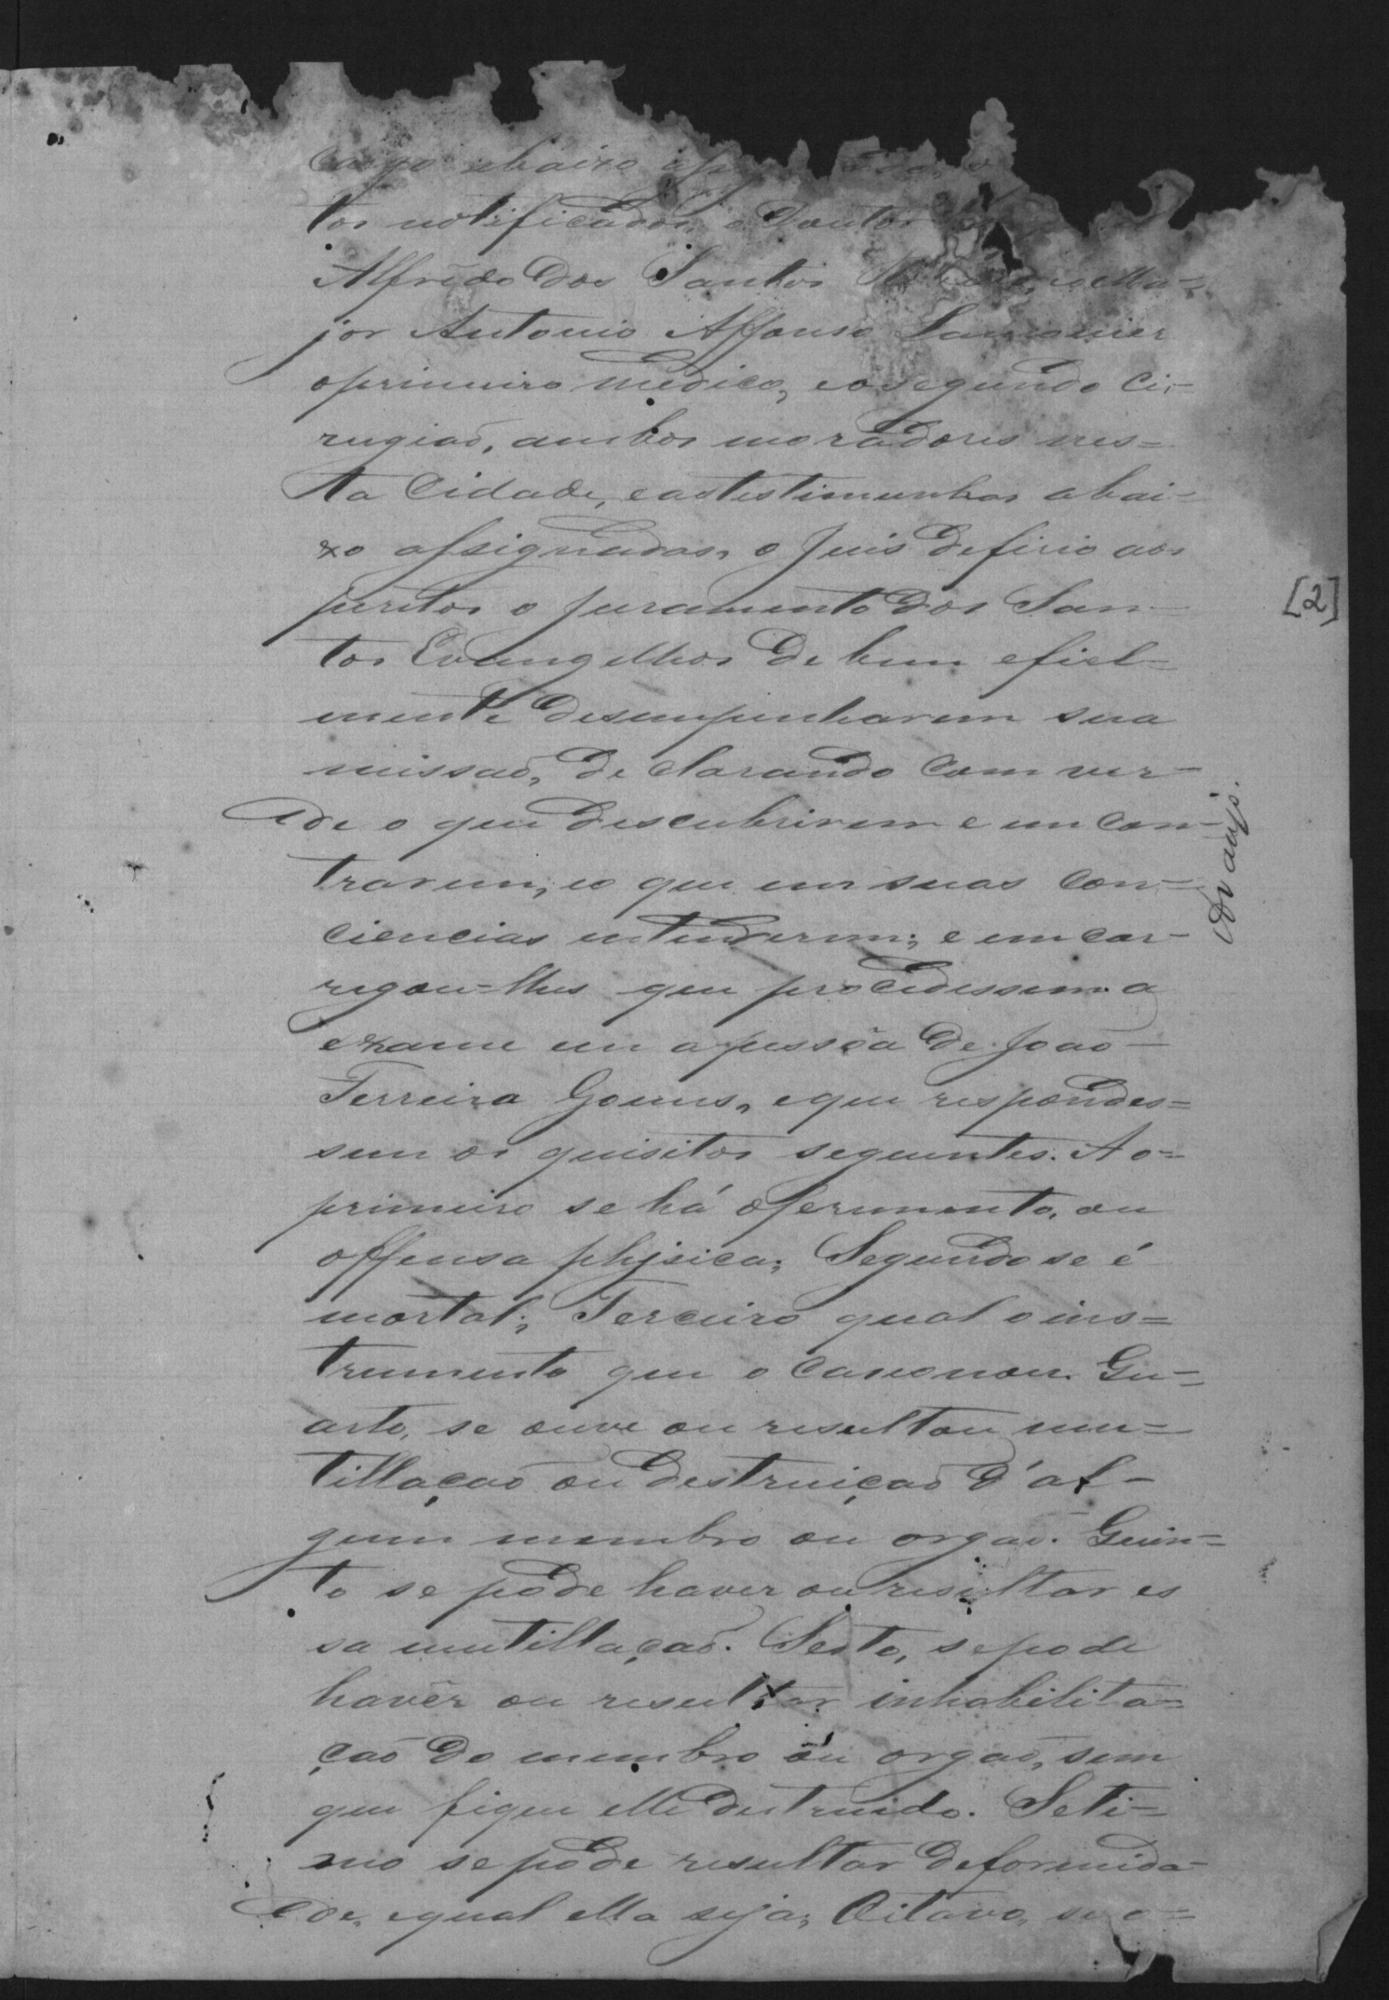 cargo abaixo
tos notificados o Doutor
Alfredo dos Santos o Ma-
jor Antonio Affonso
o primeiro medico, e o segundo Ci-
rugiaõ, ambos moradores nes=
ta Cidade, e as testimunhas abai-
xo assignadas, o Juis defirio aos
peritos o juramento dos San-
tos Evangelhos de bem e fiel=
mente desempenharem sua
missaõ, de clarando com ver-
dade o que descubrirem e en con-
trarem, e o que em suas con=
ciencias entenderem; e en car-
regou-lhes que procedessem a
exame em a pessôa de Joaõ
Ferreira Gomes, e que respondes=
sem os quisitos seguintes. Ao=
primeiro se há oferimento, ou
offensa phisica; Segundo se é
mortal; Terceiro qual o ins=
trumento que o casionou. Qu=
arto, se ouve ou resultou mu=
tillaçaõ ou destruiçaõ d'al-
gum membro ou orgaõ. Quin=
to se pode haver ou resultar es
sa mutillaçaõ. Sesto, se pode
haver ou resultar inhabilita=
çaõ do membro ou orgaõ, sem
que fique elle destruido. Seti-
mo se póde resultar deformida-
de, e qual ella seja; Oitavo, se o=
[2]